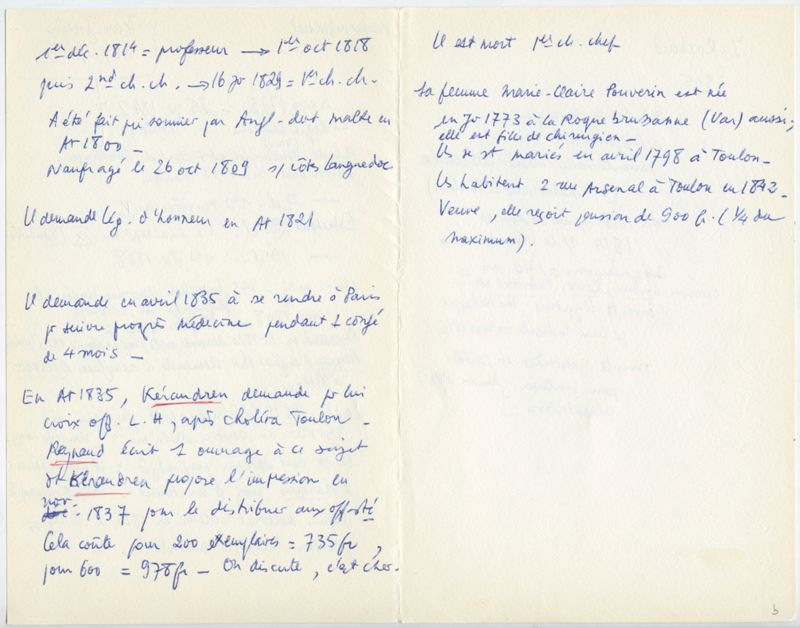 1er déc. 1814 = professeur → 1er oct 1818
puis 2nd ch. ch. → 16 Jr 1829 = 1er ch. ch.
A été fait prisonnier par Angl. dvt Malte en
At 1800 -
Naufragé le 26 oct 1809 s/ côts Languedoc
Il demande Lég. d'honneur en At 1821
Il demande en avril 1835 à se rendre à Paris
pr suivre progrès Médecine pendant 1 congé
de 4 mois -
En At 1835, Kérandren demande pr lui
croix off. L. H, après choléra Toulon -
Reynaud écrit 1 ouvrage à ce sujet
dt Kérandren propose l'impression en
nov. 1837 pour le distribuer aux off santé
Cela coûte pour 200 exemplaires = 735 fr,
pour 600 = 978 fr - On discute, c'est cher -
Il est mort 1er ch. chef
Sa femme Marie-Claire Pouverin est née
en Jr 1773 à la Roque brussanne (Var) aussi;
elle est fille de chirurgien -
Ils se st mariés en avril 1798 à Toulon -
Ils habitent 2 rue Arsenal à Toulon en 1842 -
Veuve, elle reçoit pension de 900 fr. (1/4 du
maximum).
b